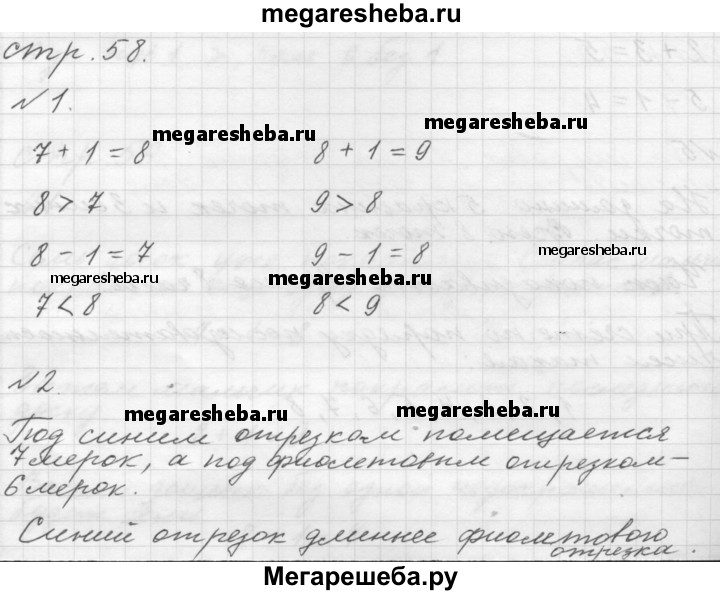 megaresheba.ru
стр. 58.
№1.
megaresheba.ru
megaresheba.ru
7 + 1 = 8 8 + 1 = 9
8 > 7 9 > 8
8 - 1 = 7 9 - 1 = 8
megaresheba.ru
megaresheba.ru
megaresheba.ru
7 < 8 8 < 9
№2.
megaresheba.ru
megaresheba.ru
Под синим отрезком помещается
7 мерок, а под фиолетовым отрезком -
6 мерок.
Синий отрезок длиннее фиолетового
отрезка.
Мегарешеба.ру